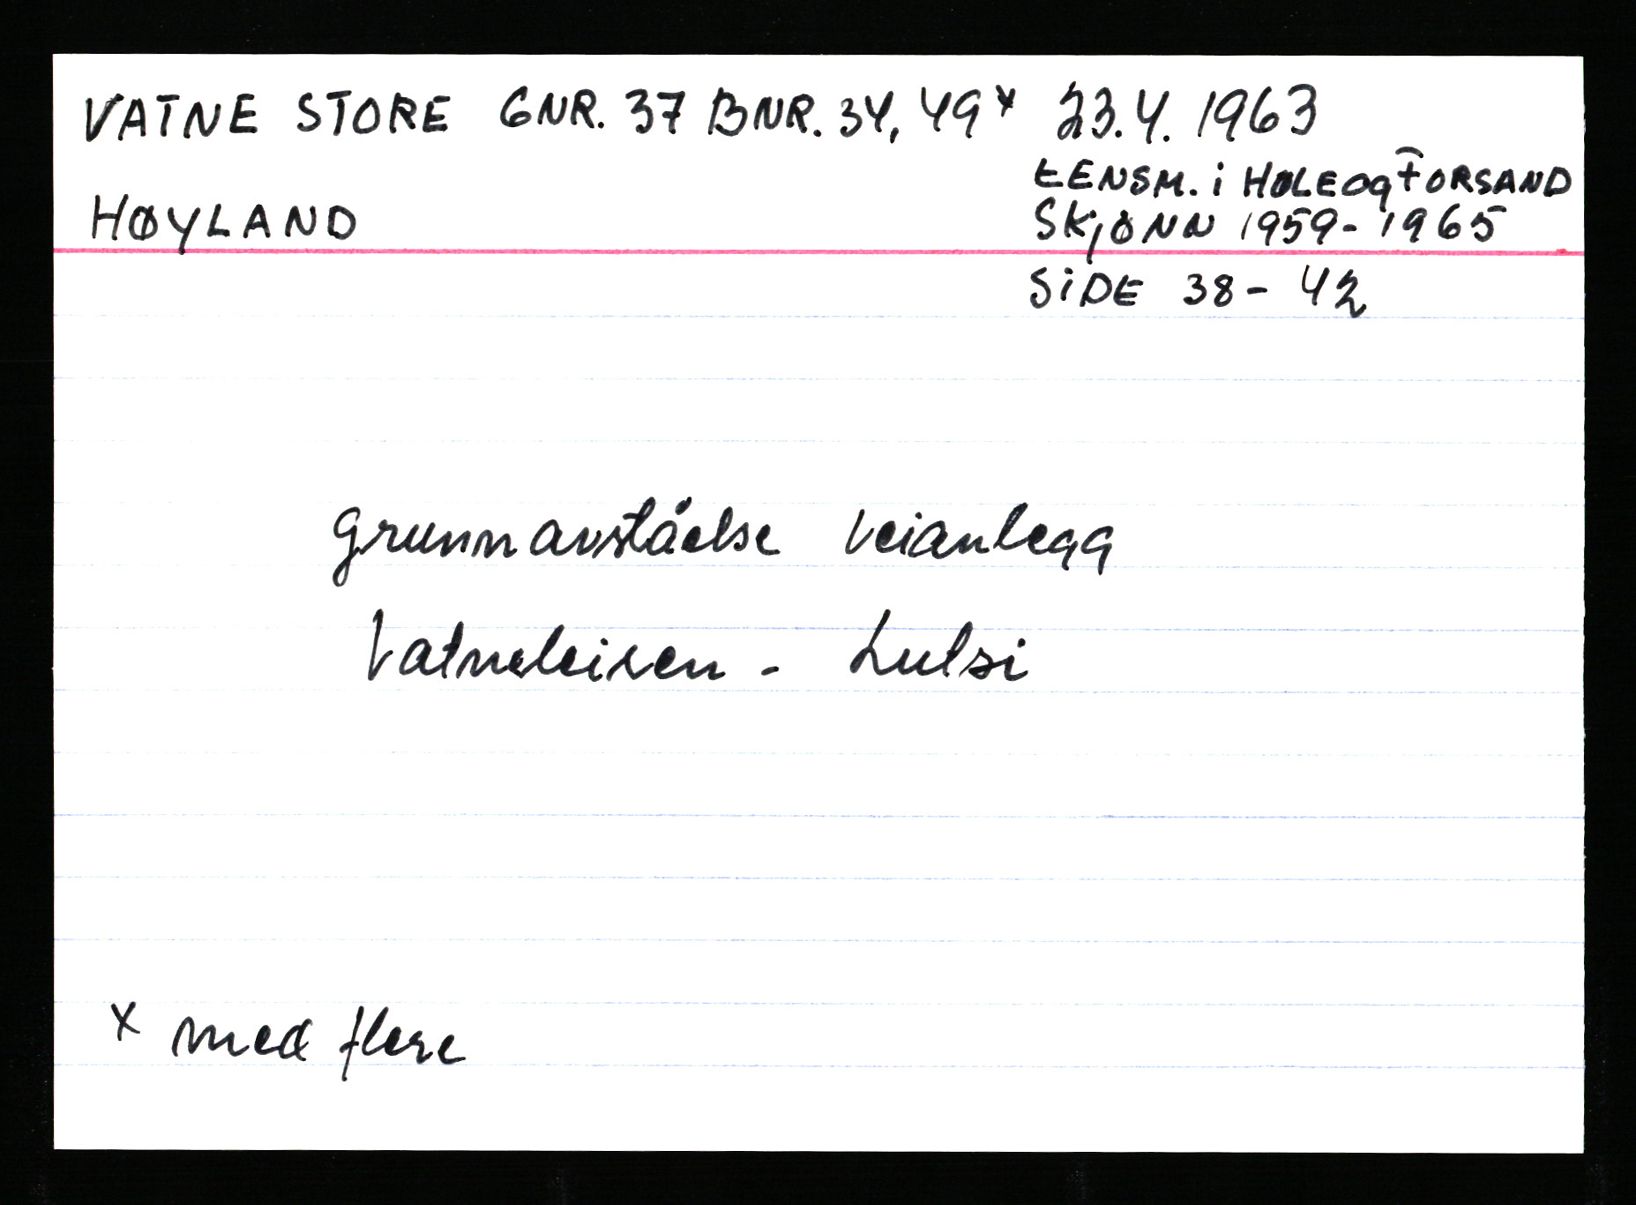 VATNE STORE GNR. 37 BNR. 34, 49x 23.4. 1963
LENSM. i HØLE og FORSAND
HØYLAND
SKJØNN 1959-1965
SIDE 38-42
grunnavståelse veianlegg
Vatneleiren - Lutsi
x med flere